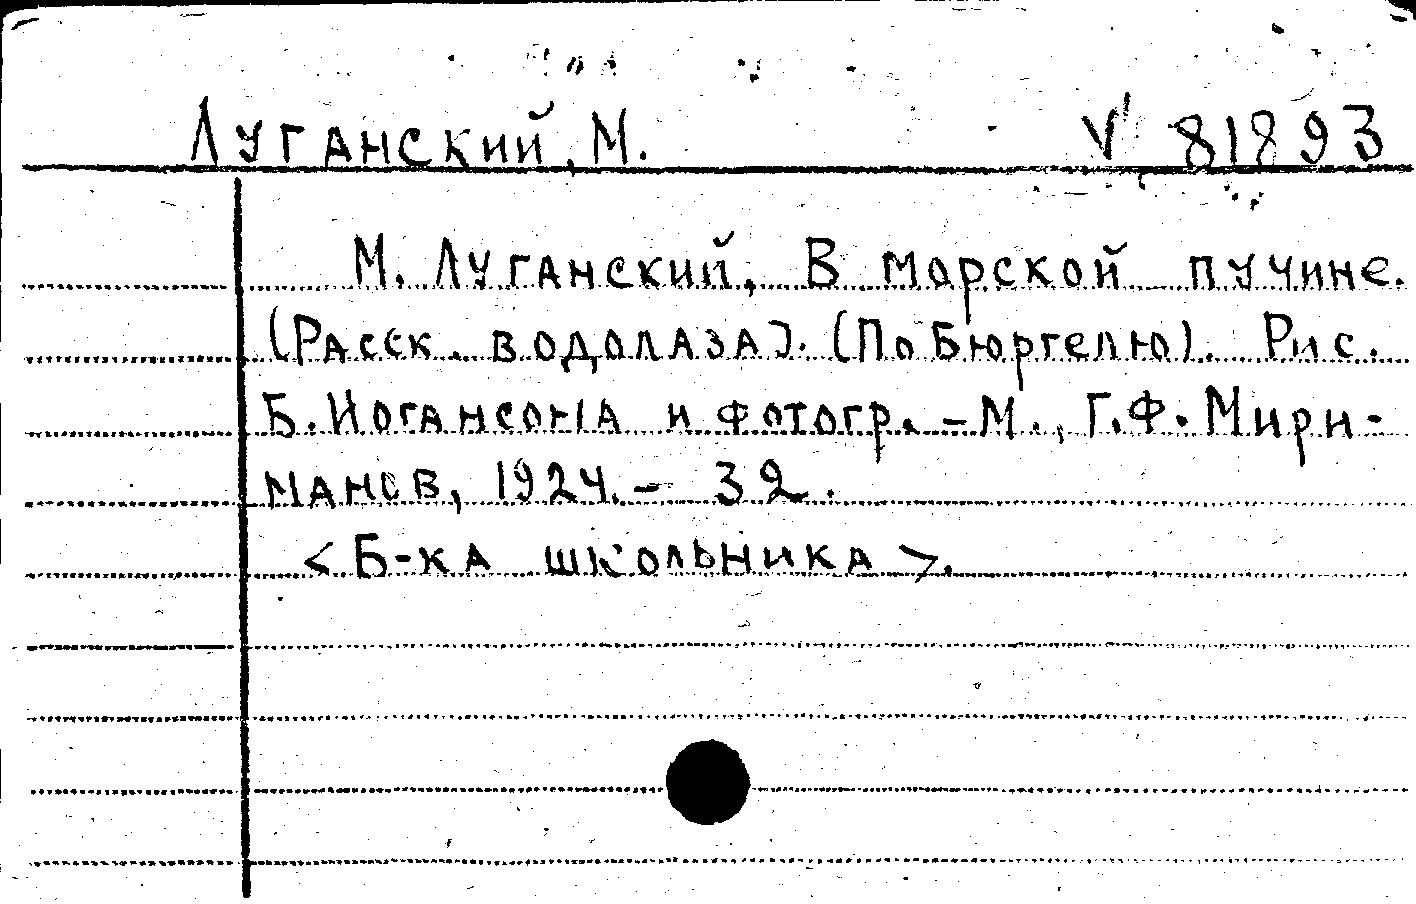 Луганский, М. V 81893
М. Луганский, В морской пучине.
(Расск. водолаза). (По Бюргелю). Рис.
Б. Иогансона и фотогр. – М., Г.Ф. Мири-
манов, 1924. – 32.
<Б-ка школьника>.